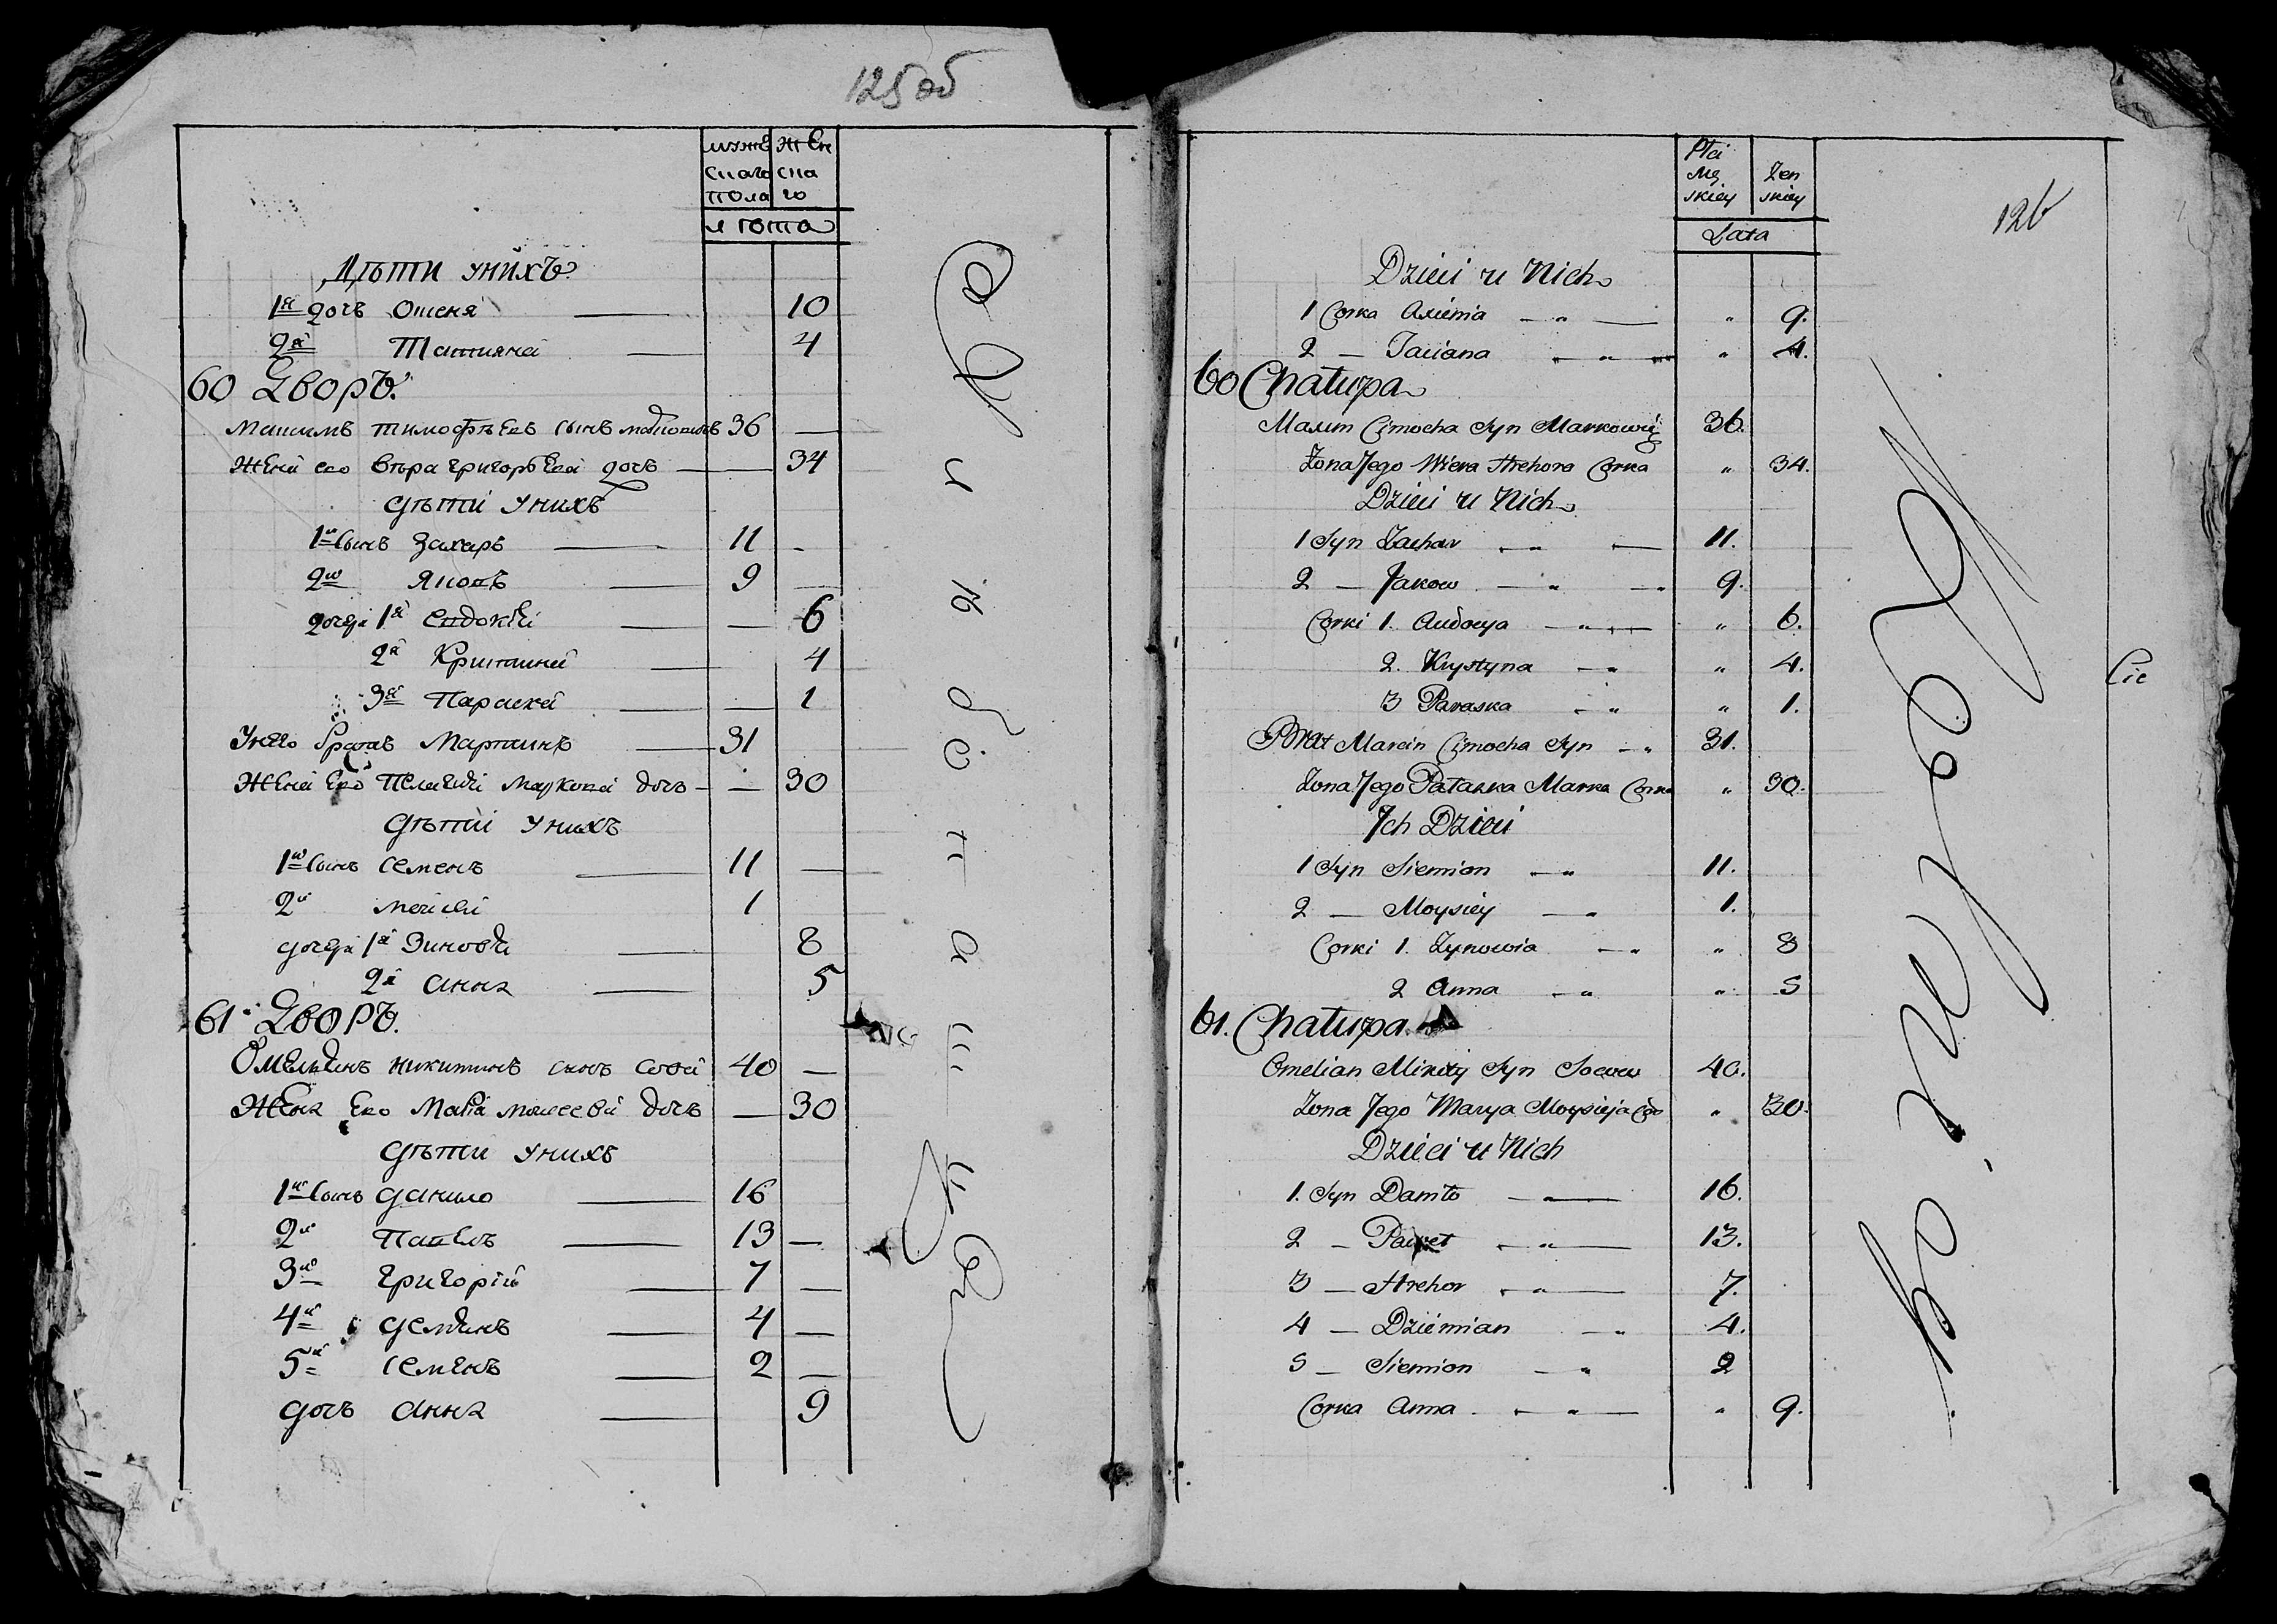 125 об
мужескаго пола
женскаго
лѣта
Дѣти у нихъ
1я дочь Оксеня 10
2я Татияна 4
60 Дворъ.
Максимъ Тимофѣевъ сынъ 36 —
Жена его Вѣра Григорьева дочь — 34
Дѣти у нихъ
1й сынъ Захаръ 11 -
2й Яковъ 9 —
дочери 1я Евдокия — 6
2я Кристина 4
3я Параска — 1
У него братъ Мартинъ 31
Жена его Пелагия Маркова дочь — 30
Дѣти у нихъ
1й сынъ Семенъ 11 —
2й 1
дочери 1я Зиновия 8
2я Анна 5
61 Дворъ.
Омельянъ Никитинъ сынъ 40 —
Жена его Мария Моисеева дочь — 30
Дѣти у нихъ
1й сынъ Данило 16
2й Павелъ 13 —
3й Григорий 7 —
4й Демянъ 4 —
5й Семенъ 2 —
дочь Анна 9
126
Płci Męskiey
Żenskiey
Lata
Dzieci u Nich
1 Corka Axienia " 9.
2 — Taciana " 4.
60 Chałupa
Maxim Cimocha Syn Markowicz 36.
Żona Jego Wiera Hrehora Corka " 34.
Dzieci u Nich
1 Syn Zachar 11.
2 — Jakow 9.
Corki 1. Audocya " 6.
2. Krystyna " 4.
3 Paraska " 1.
Brat Marcin Cimocha Syn 31.
Żona Jego Pałaska Marka Corka " 30.
Ich Dzieci
1 Syn Siemion 11.
2 — Moysiey 1.
Corki 1. Zynowia " 8
2 Anna " 5
61. Chałupa.
Omelian Mikity Syn 40.
Żona Jego Marya Moysieja Co " 30.
Dzieci u Nich
1. Syn Daniło 16.
2 — Paweł 13.
3 — Hrehor 7.
4 — Dziemian 4.
5 — Siemion 2
Corka Anna " 9.